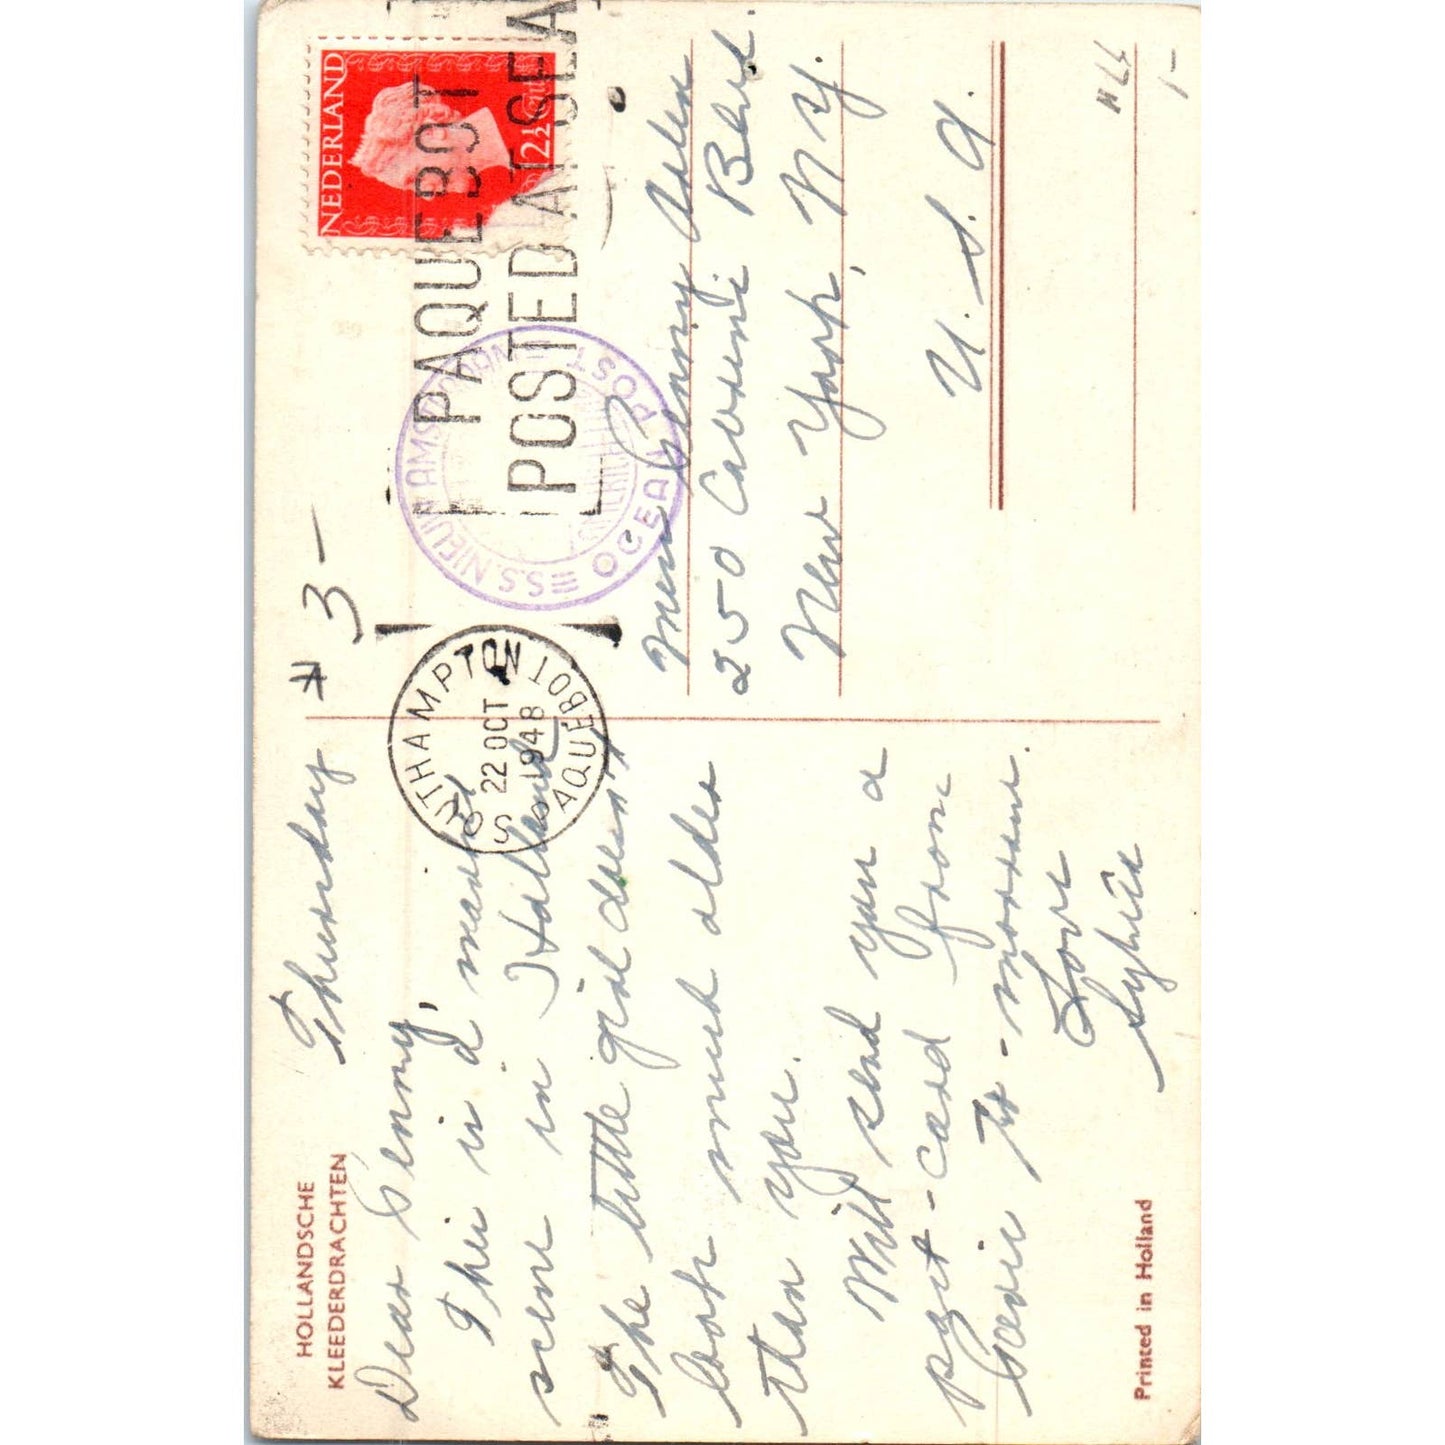 HOLLANDSCHE
KLEEDERDRACHTEN
Thursday
Dear Penny,
This is a market
scene in Holland
The little girl doesn't
look much older
than you.
Will send you a
post-card from
Paris to-morrow.
Love
Sylvia
Printed in Holland
# 3-
NEDERLAND
2½ cent
PAQUEBOT
POSTED AT SEA
SOUTHAMPTON
22 OCT
1948
PAQUEBOT
S.S. NIEUW AMSTERDAM
OCEAN POST
Miss Penny
250 Cabrini Blvd.
New York, N.Y.
U. S. A.
1-